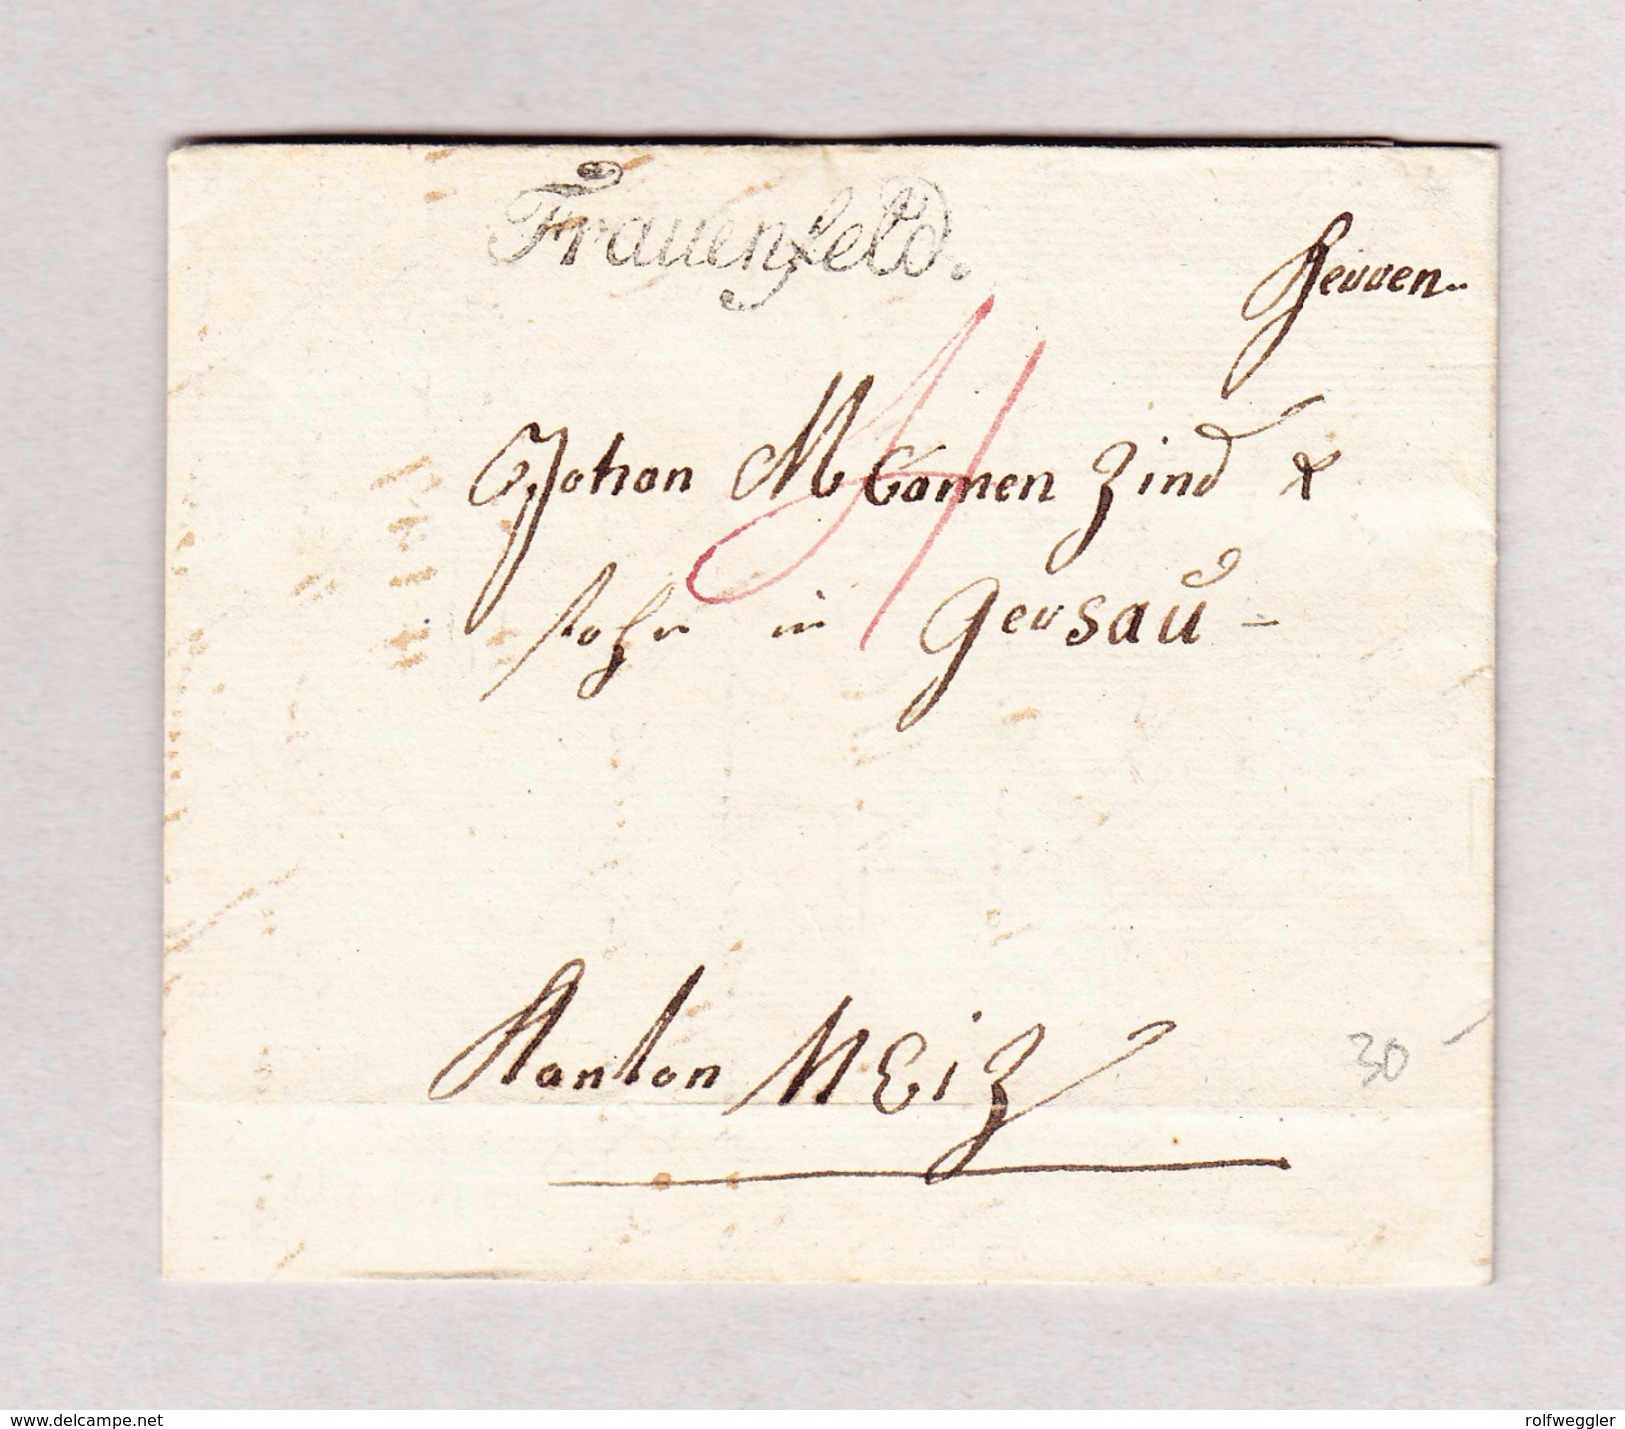 Frauenfeld.
Herren..
Johan M Camenzind &
sohn in Gersau =
Kanton
30
www.delcampe.net
rolfweggler